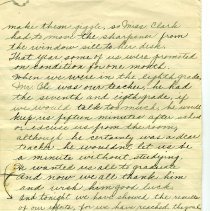 make them giggle, so Miss Clark
had to move the sharpener from
the window sill to her desk.
That year some of us were promoted
on condition for one month.
When we were in the eighth grade
Mr. Ole was our teacher, he had
the seventh and eighth grade, if
we would talk too much, he would
keep us fifteen minutes after school
or excuse us from the room,
although he certainly was a dear
teacher he wouldn't let us be
a minute without studying
he wanted us all to graduate
and now we all thank him
and wish him good luck
and tonight we have showed the results
of our efforts, for we have reached the goal